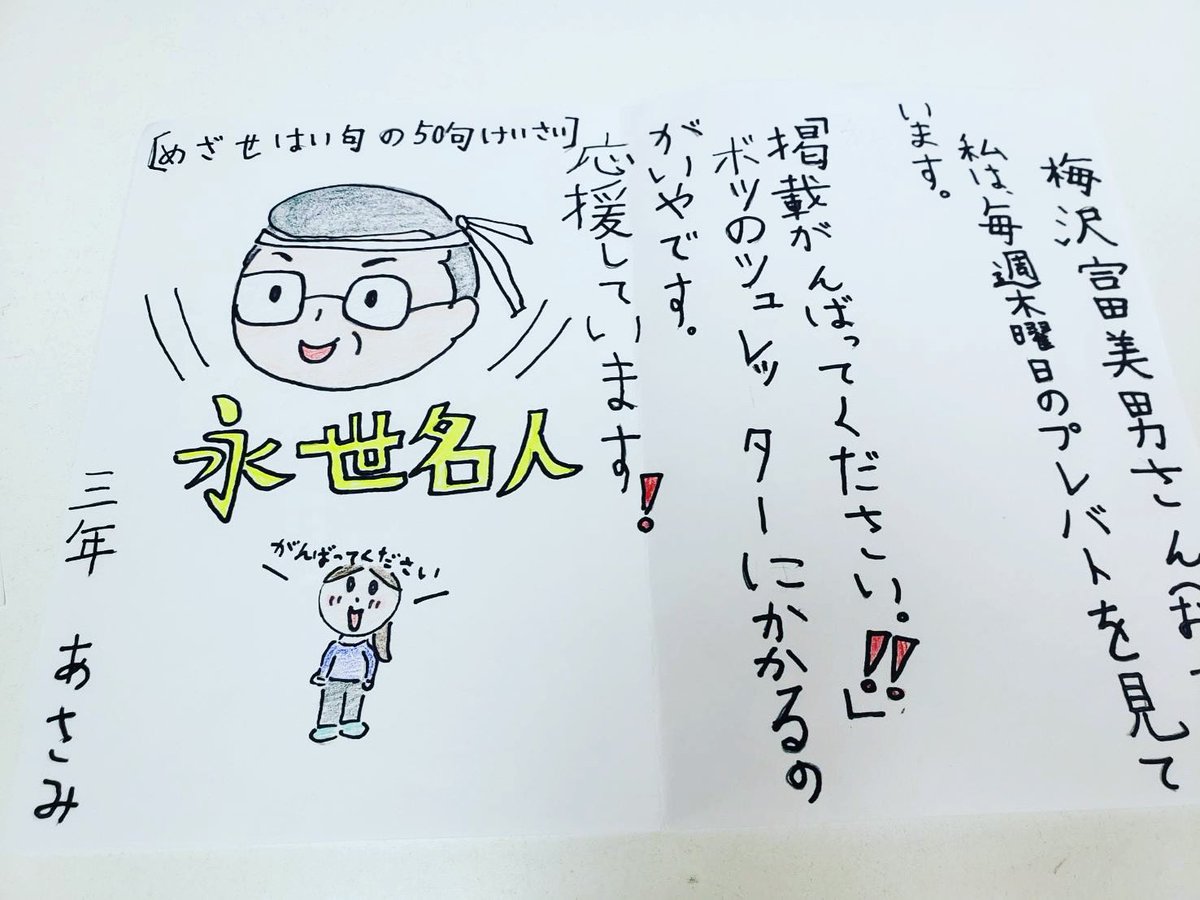 梅沢富美男さん(おっ
私は、毎週木曜日のプレバトを見て
います。
「掲載がんばってください。!!」
ボツのシュレッターにかかるの
がいやです。
応援しています!
[めざせはい句の50句けいさい]
永世名人
がんばってください
三年 あさみ